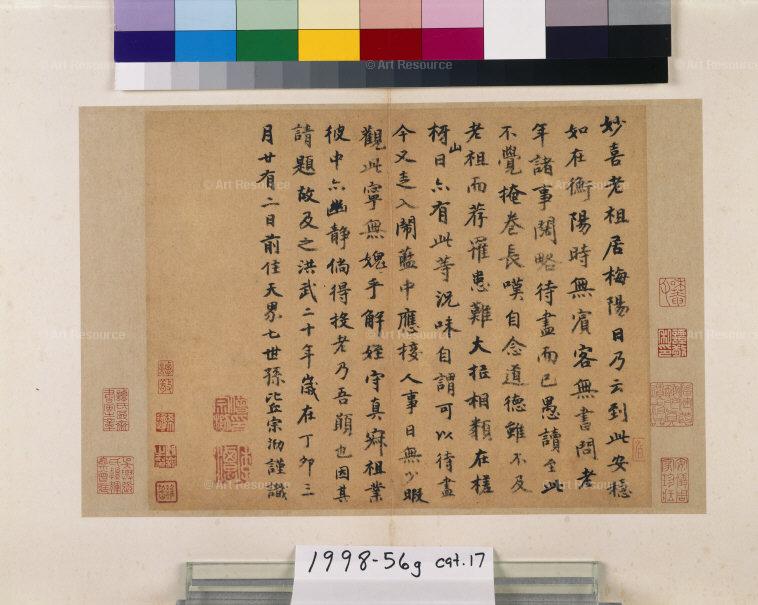 妙喜老祖居梅陽日乃云到此安穩
如在衡陽時無賓客無書問老
年諸事闊略待盡而已愚讀至此
不覺掩卷長嘆自念道德雖不及
老祖而荐罹患難大抵相類在槎
枒山日亦有此等況味自謂可以待盡
今又走入鬧藍中應接人事日無少暇
觀此寧無媿乎解姪守真寂祖業
彼中亦幽靜倘得投老乃吾願也因其
請題故及之洪武二十年歲在丁卯三
月廿有二日前住天界七世孫比丘宗泐謹識
1998-56g cat.17
© Art Resource
© Art Resource
© Art Resource
© Art Resource
© Art Resource
© Art Resource
© Art Resource
© Art Resource
© Art Resource
© Art Resource
© Art Resource
© Art Resource